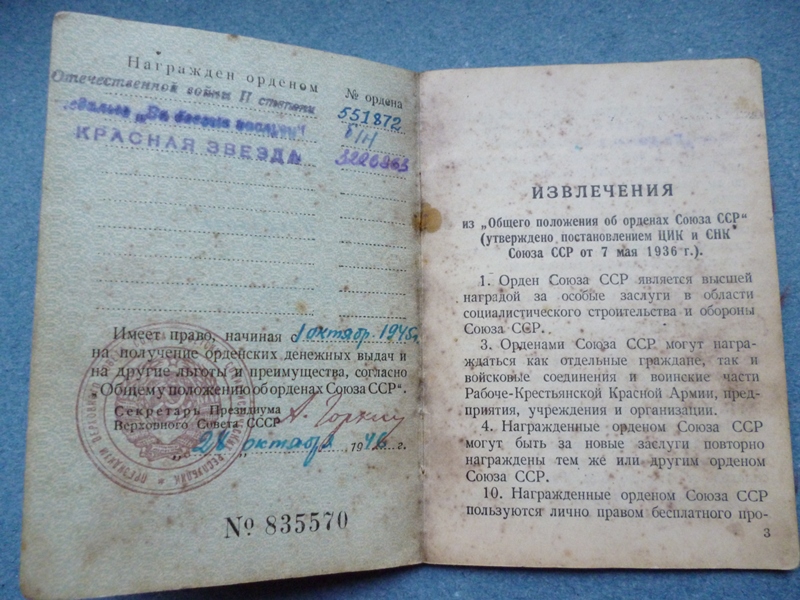 Награжден орденом
№ ордена
Отечественной войны II степени
551872
„За боевые заслуги"
б/н
КРАСНАЯ ЗВЕЗДА
Имеет право, начиная с 1 октябр. 1945 г.
на получение орденских денежных выдач и
на другие льготы и преимущества, согласно
„Общему положению об орденах Союза ССР".
Секретарь Президиума
Верховного Совета СССР
А. Горкин
„28" октября 194 г.
№ 835570
ИЗВЛЕЧЕНИЯ
из „Общего положения об орденах Союза ССР"
(утверждено постановлением ЦИК и СНК
Союза ССР от 7 мая 1936 г.).
1. Орден Союза ССР является высшей
наградой за особые заслуги в области
социалистического строительства и обороны
Союза ССР.
3. Орденами Союза ССР могут награ-
ждаться как отдельные граждане, так и
войсковые соединения и воинские части
Рабоче-Крестьянской Красной Армии, пред-
приятия, учреждения и организации.
4. Награжденные орденом Союза ССР
могут быть за новые заслуги повторно
награждены тем же или другим орденом
Союза ССР.
10. Награжденные орденом Союза ССР
пользуются лично правом бесплатного про-
3